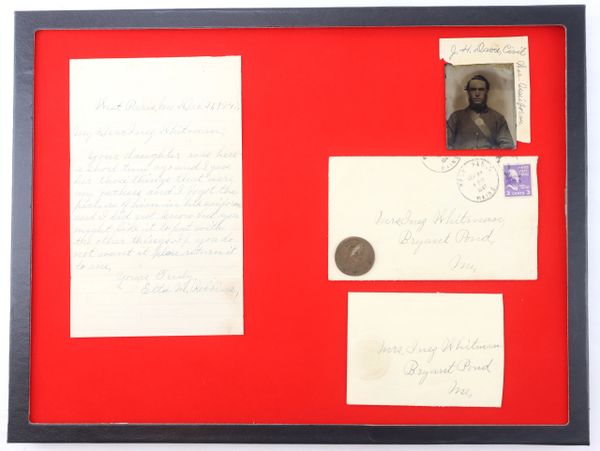 West Paris, Me.
My Dear Inez Whitman,
Your daughter was here
a short time ago and I gave
her those things that were
my and I kept the
picture of him in his uniform
and I did not know but you
might like it to put with
the other things. If you do
not want it please return it
to me,
Yours Truly,
Etta M.
J. H. Davis, Civil
War Uniform
MAINE
3 CENTS 3
Mrs. Inez Whitman,
Bryant Pond,
Me,
Mrs. Inez Whitman
Bryant Pond
Me,